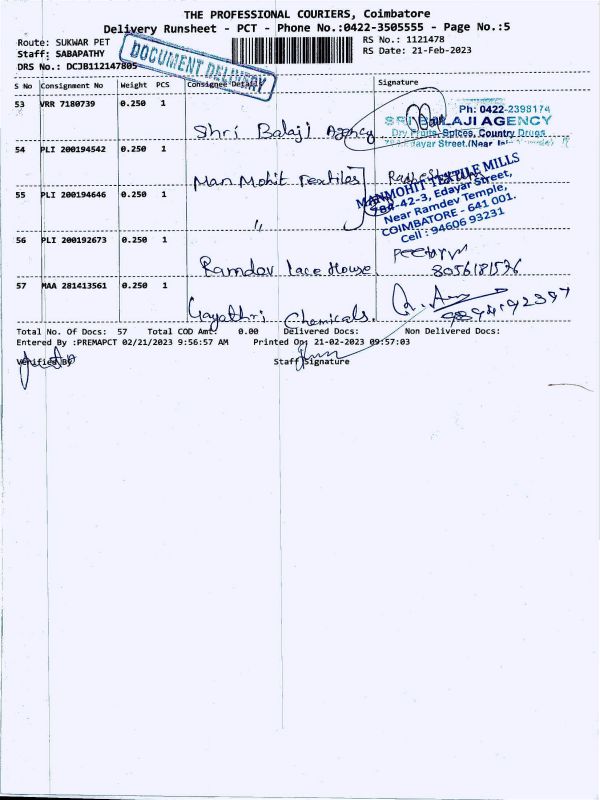 THE PROFESSIONAL COURIERS, Coimbatore
Delivery Runsheet - PCT - Phone No.:0422-3505555 - Page No.:5
Route: SUKWAR PET
RS No.: 1121478
Staff: SABAPATHY
RS Date: 21-Feb-2023
DRS No.: DCJB112147805
DOCUMENT DELIVERY
S No Consignment No Weight PCS Consignee Details Signature
53 VRR 7180739 0.250 1
Shri Balaji Agency
Ph: 0422-2398174
SRI BALAJI AGENCY
Dry Fruits, Spices, Country Drugs
Street.(Near
54 PLI 200194542 0.250 1
Man Mohit Textiles
MANMOHIT TEXTILE MILLS
784-42-3, Edayar Street,
Near Ramdev Temple,
COIMBATORE - 641 001.
Cell : 94606 93231
55 PLI 200194646 0.250 1
"
56 PLI 200192673 0.250 1
Ramdev lace House
8056181576
57 MAA 281413561 0.250 1
Gayathri Chemicals.
9894192397
Total No. Of Docs: 57 Total COD Amt: 0.00 Delivered Docs: Non Delivered Docs:
Entered By :PREMAPCT 02/21/2023 9:56:57 AM Printed On: 21-02-2023 09:57:03
Verified By
Staff Signature